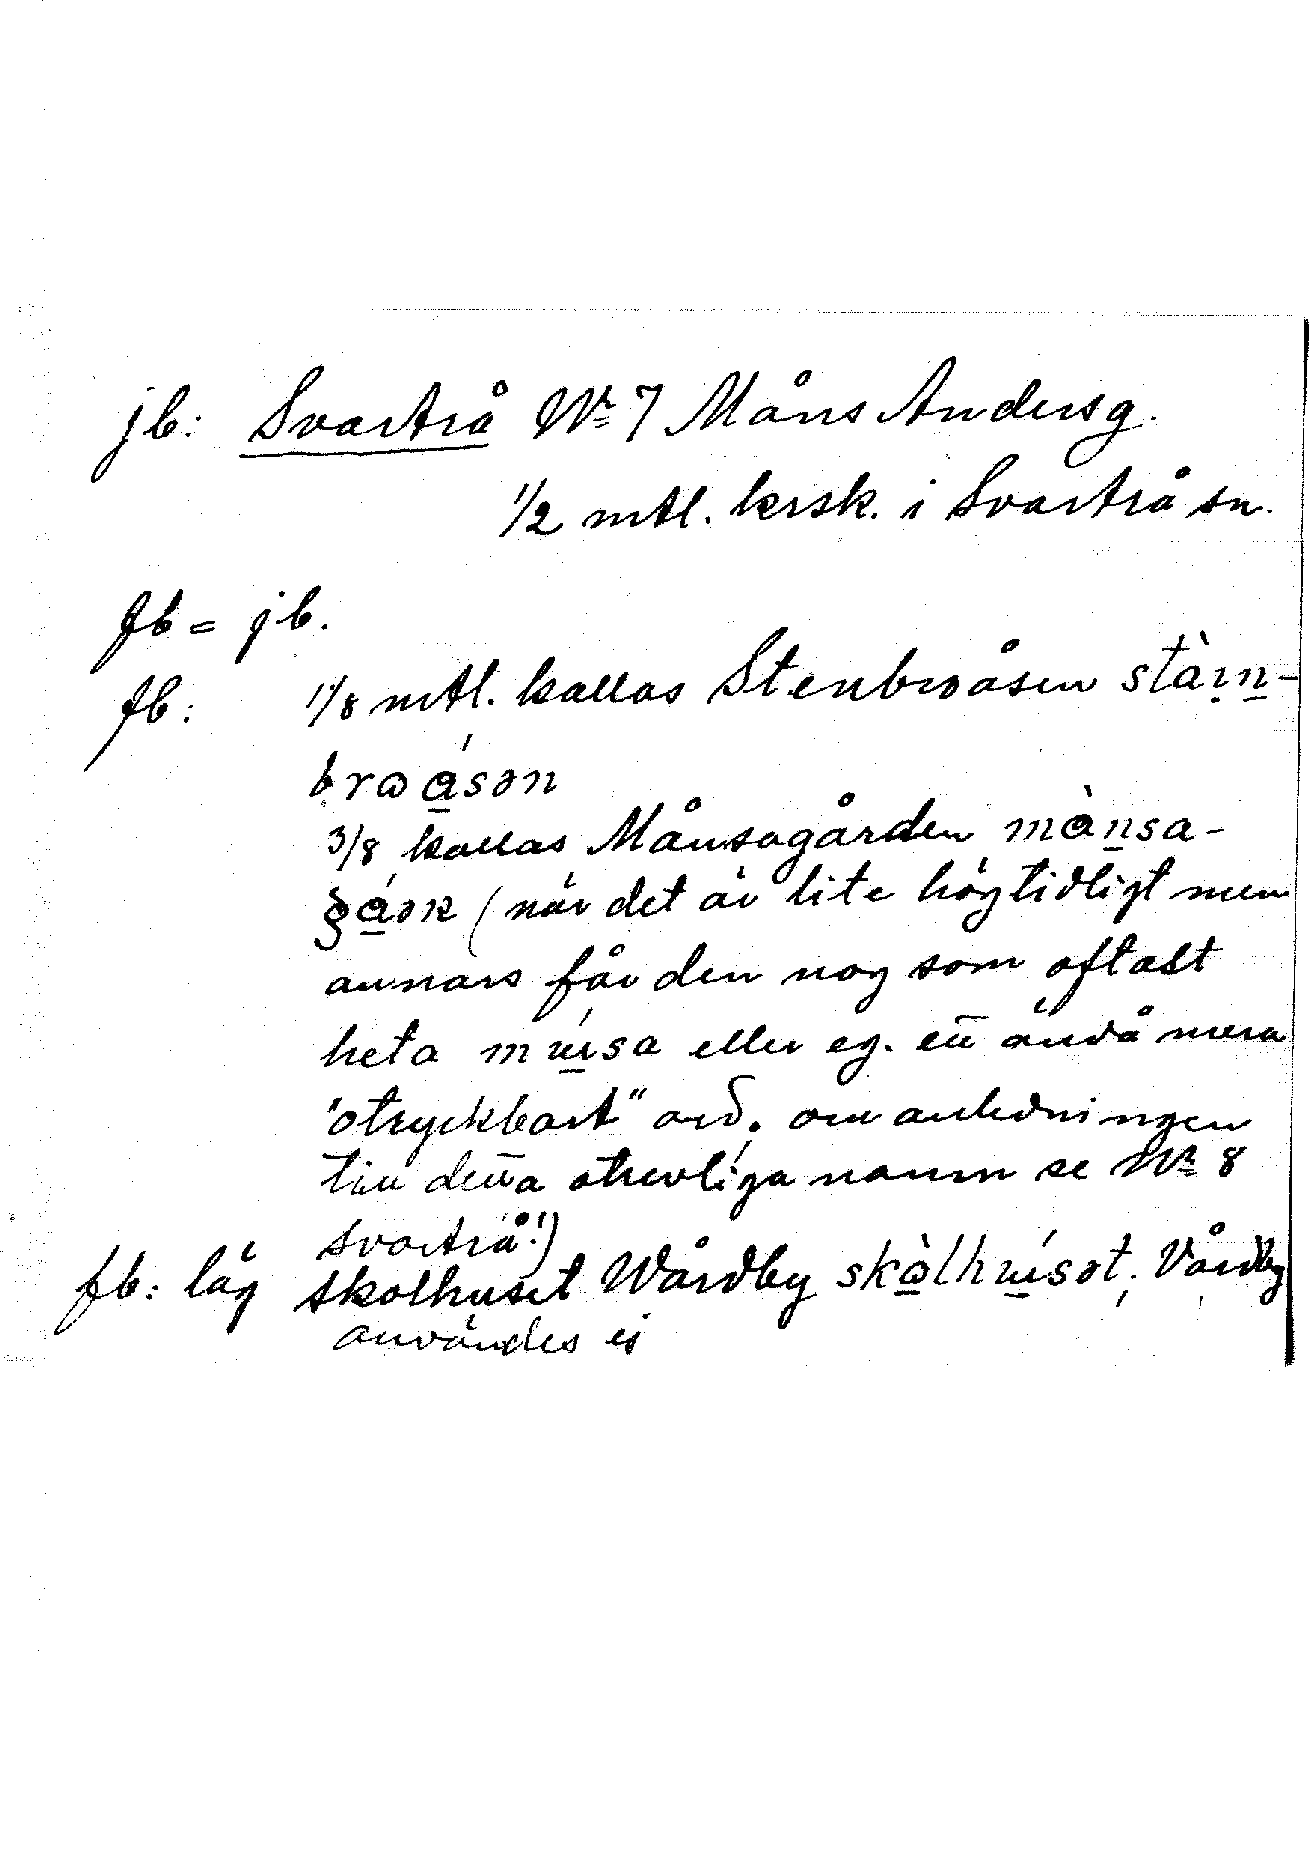 jb: Svartrå Nr 7 Måns Andersg.
1/2 mtl. krsk. i Svartrå sn.
fb = jb.
fb: 1/8 mtl. kallas Stenbroåsen stàin-
brɷásən
3/8 kallas Månsagården mànsa-
gáən (när det är lite högtidligt men
annars får den nog som oftast
heta musa eller eg. ett ändå mera
"otryckbart" ord. om anledningen
till detta otrevliga namn se Nr 8
Svartrå!)
fb: låg skolhuset Wårdby skɷ̀lhúsət; Vårdby
användes ej